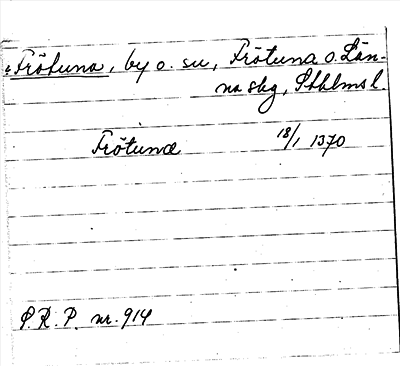 Frötuna, by o. su, Frötuna o. Län-
na skg, Sthlms l.
Frötunæ 18/1 1370
S.R.P. nr. 914